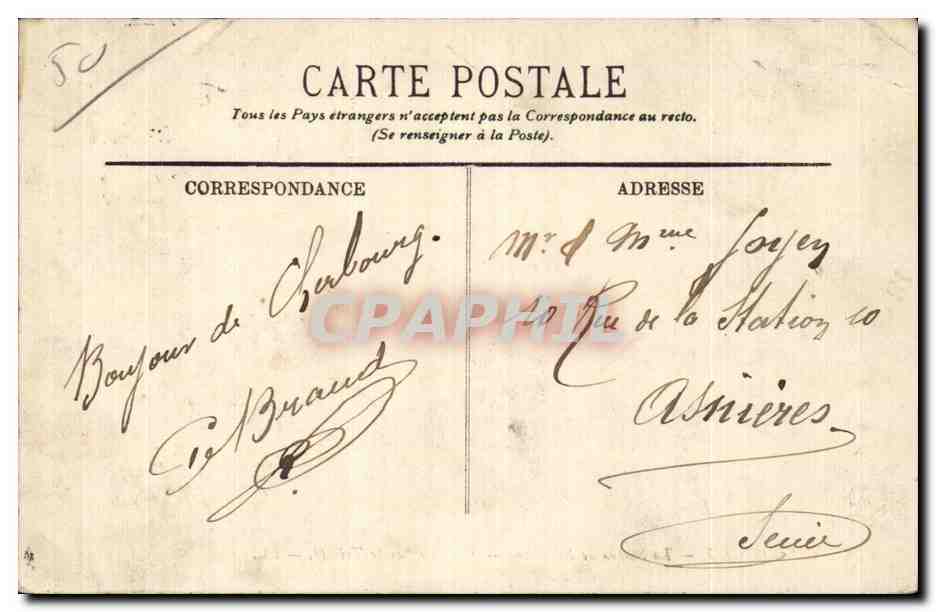 50
CARTE POSTALE
Tous les Pays étrangers n'acceptent pas la Correspondance au recto.
(Se renseigner à la Poste).
CORRESPONDANCE
ADRESSE
Bonjour de Cherbourg.
Braud
Mr & Mme
10 Rue de la Station 10
Asnières
Seine
CPAPHIL